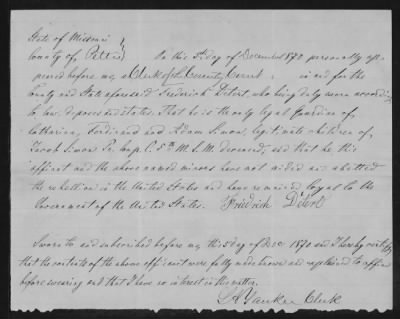 State of Missouri
County of Pettis } On this 5th day of December 1870 personally ap-
peared before me a Clerk of County Court in and for the
County and State aforesaid Friedrich Detert, who being duly sworn according
to law, deposes and states. That he is the only legal Guardian of
Catharina, Ferdinand and Adam legitimate children of
Jacob Co. C. 5th M.S.M. deceased, and that he this
affiant and the above named minors have not aided or abetted
the rebellion in the United States and have remained loyal to the
Government of the United States. Friedrich Detert
Sworn to and subscribed before me this day of Dec 1870 and I hereby certify
that the contents of the above affidavit were fully made known and explained to affiant
before swearing and that I have no interest in this matter.
Clerk